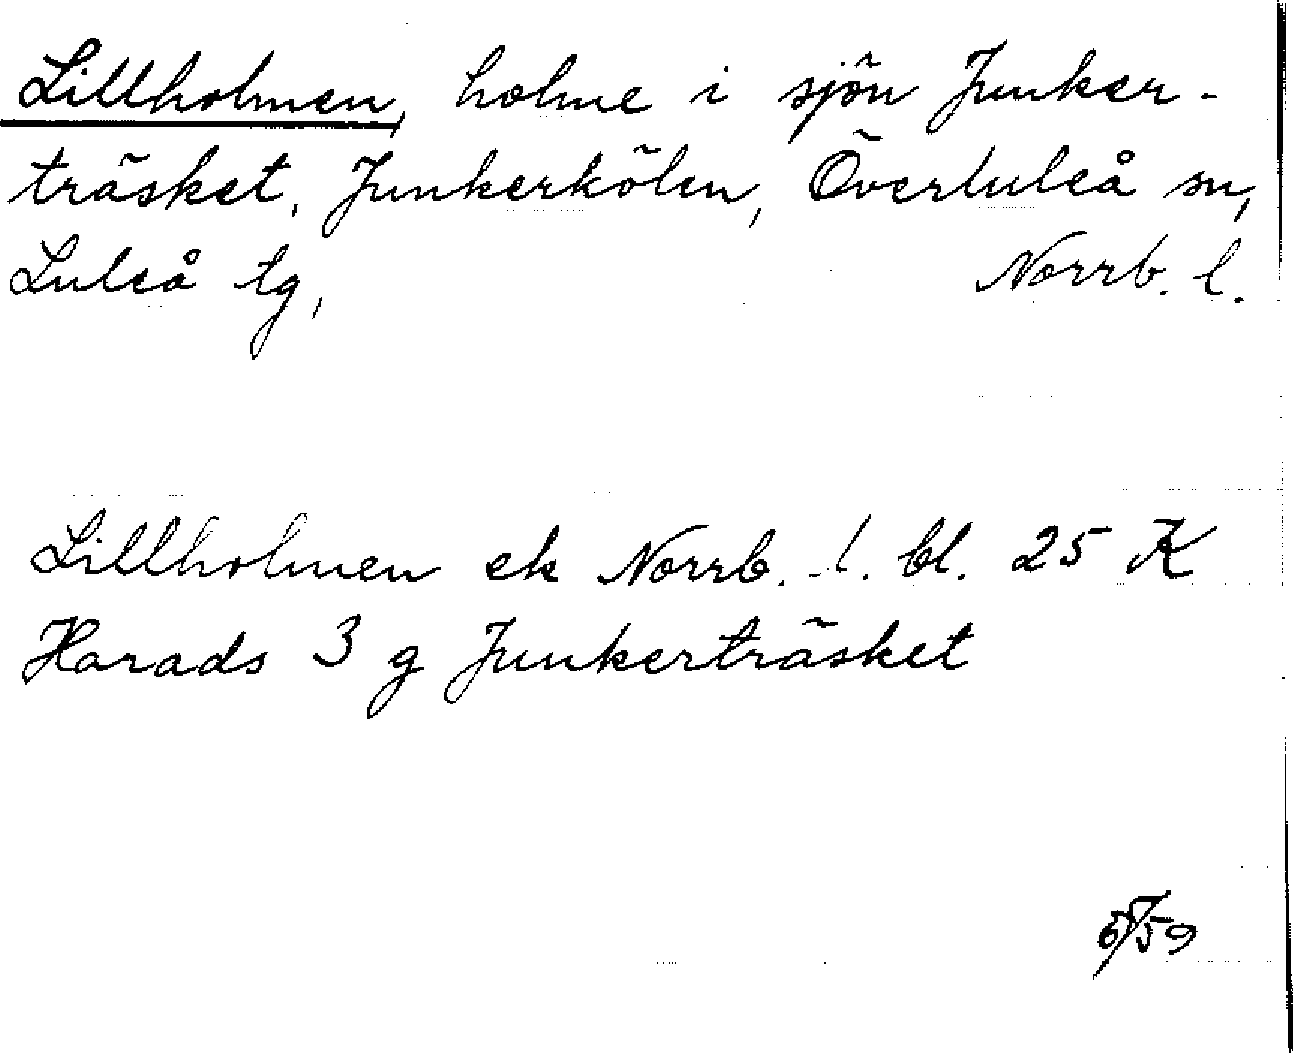 Lillholmen, holme i sjön Junker-
träsket, Junkerkölen, Överluleå sn,
Luleå tg, Norrb. l.
Lillholmen ek Norrb. l. bl. 25 K
Harads 3 g Junkerträsket